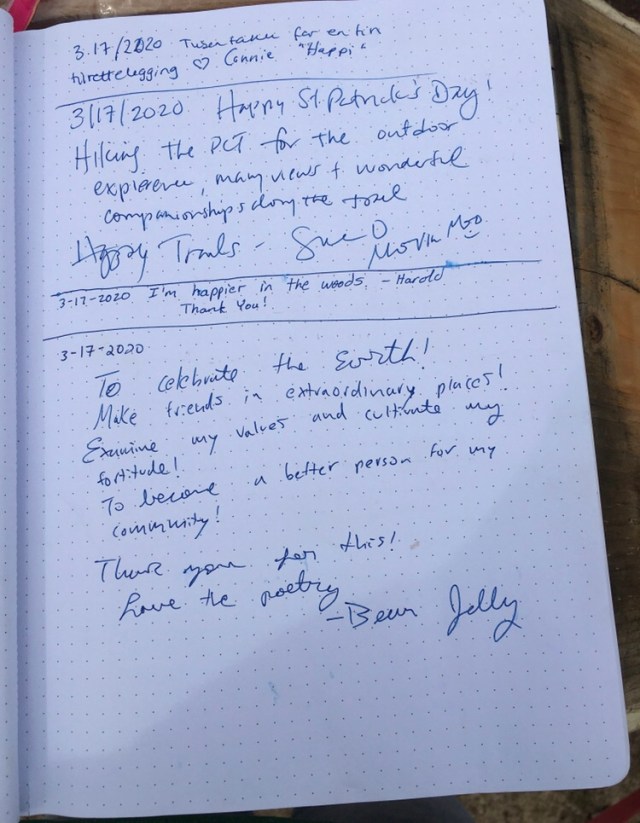 3.17/2020 Tusen takk for en fin
turettelegging ♡ Connie "Happi"
3/17/2020 Happy St. Patrick's Day!
Hiking the PCT for the outdoor
expierence, many views + wonderful
companionships along the trail
Happy Trails - Sue D
Movin Moo
3-17-2020 I'm happier in the woods. - Harold
Thank You!
3-17-2020
To celebrate the Earth!
Make friends in extraordinary places!
Examine my values and cultivate my
fortitude!
To become a better person for my
community!
Thank you for this!
Love the poetry
- Bear Jelly